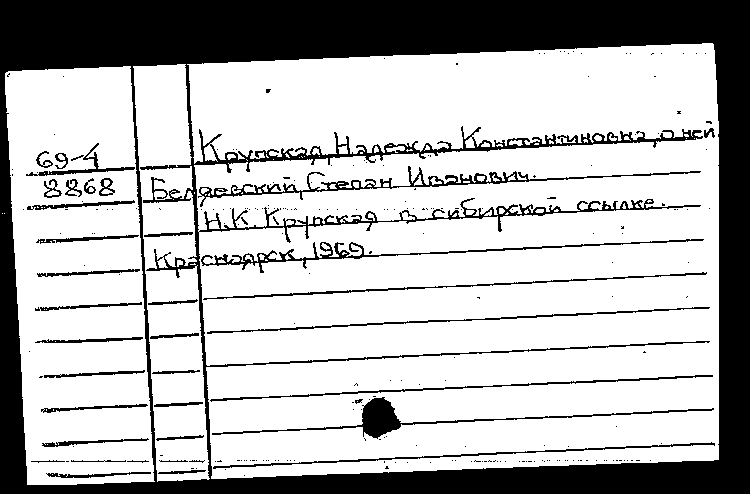 69-4 Крупская, Надежда Константиновна, о ней
8868 Беляевский, Степан Иванович.
Н.К. Крупская в сибирской ссылке.
Красноярск, 1969.